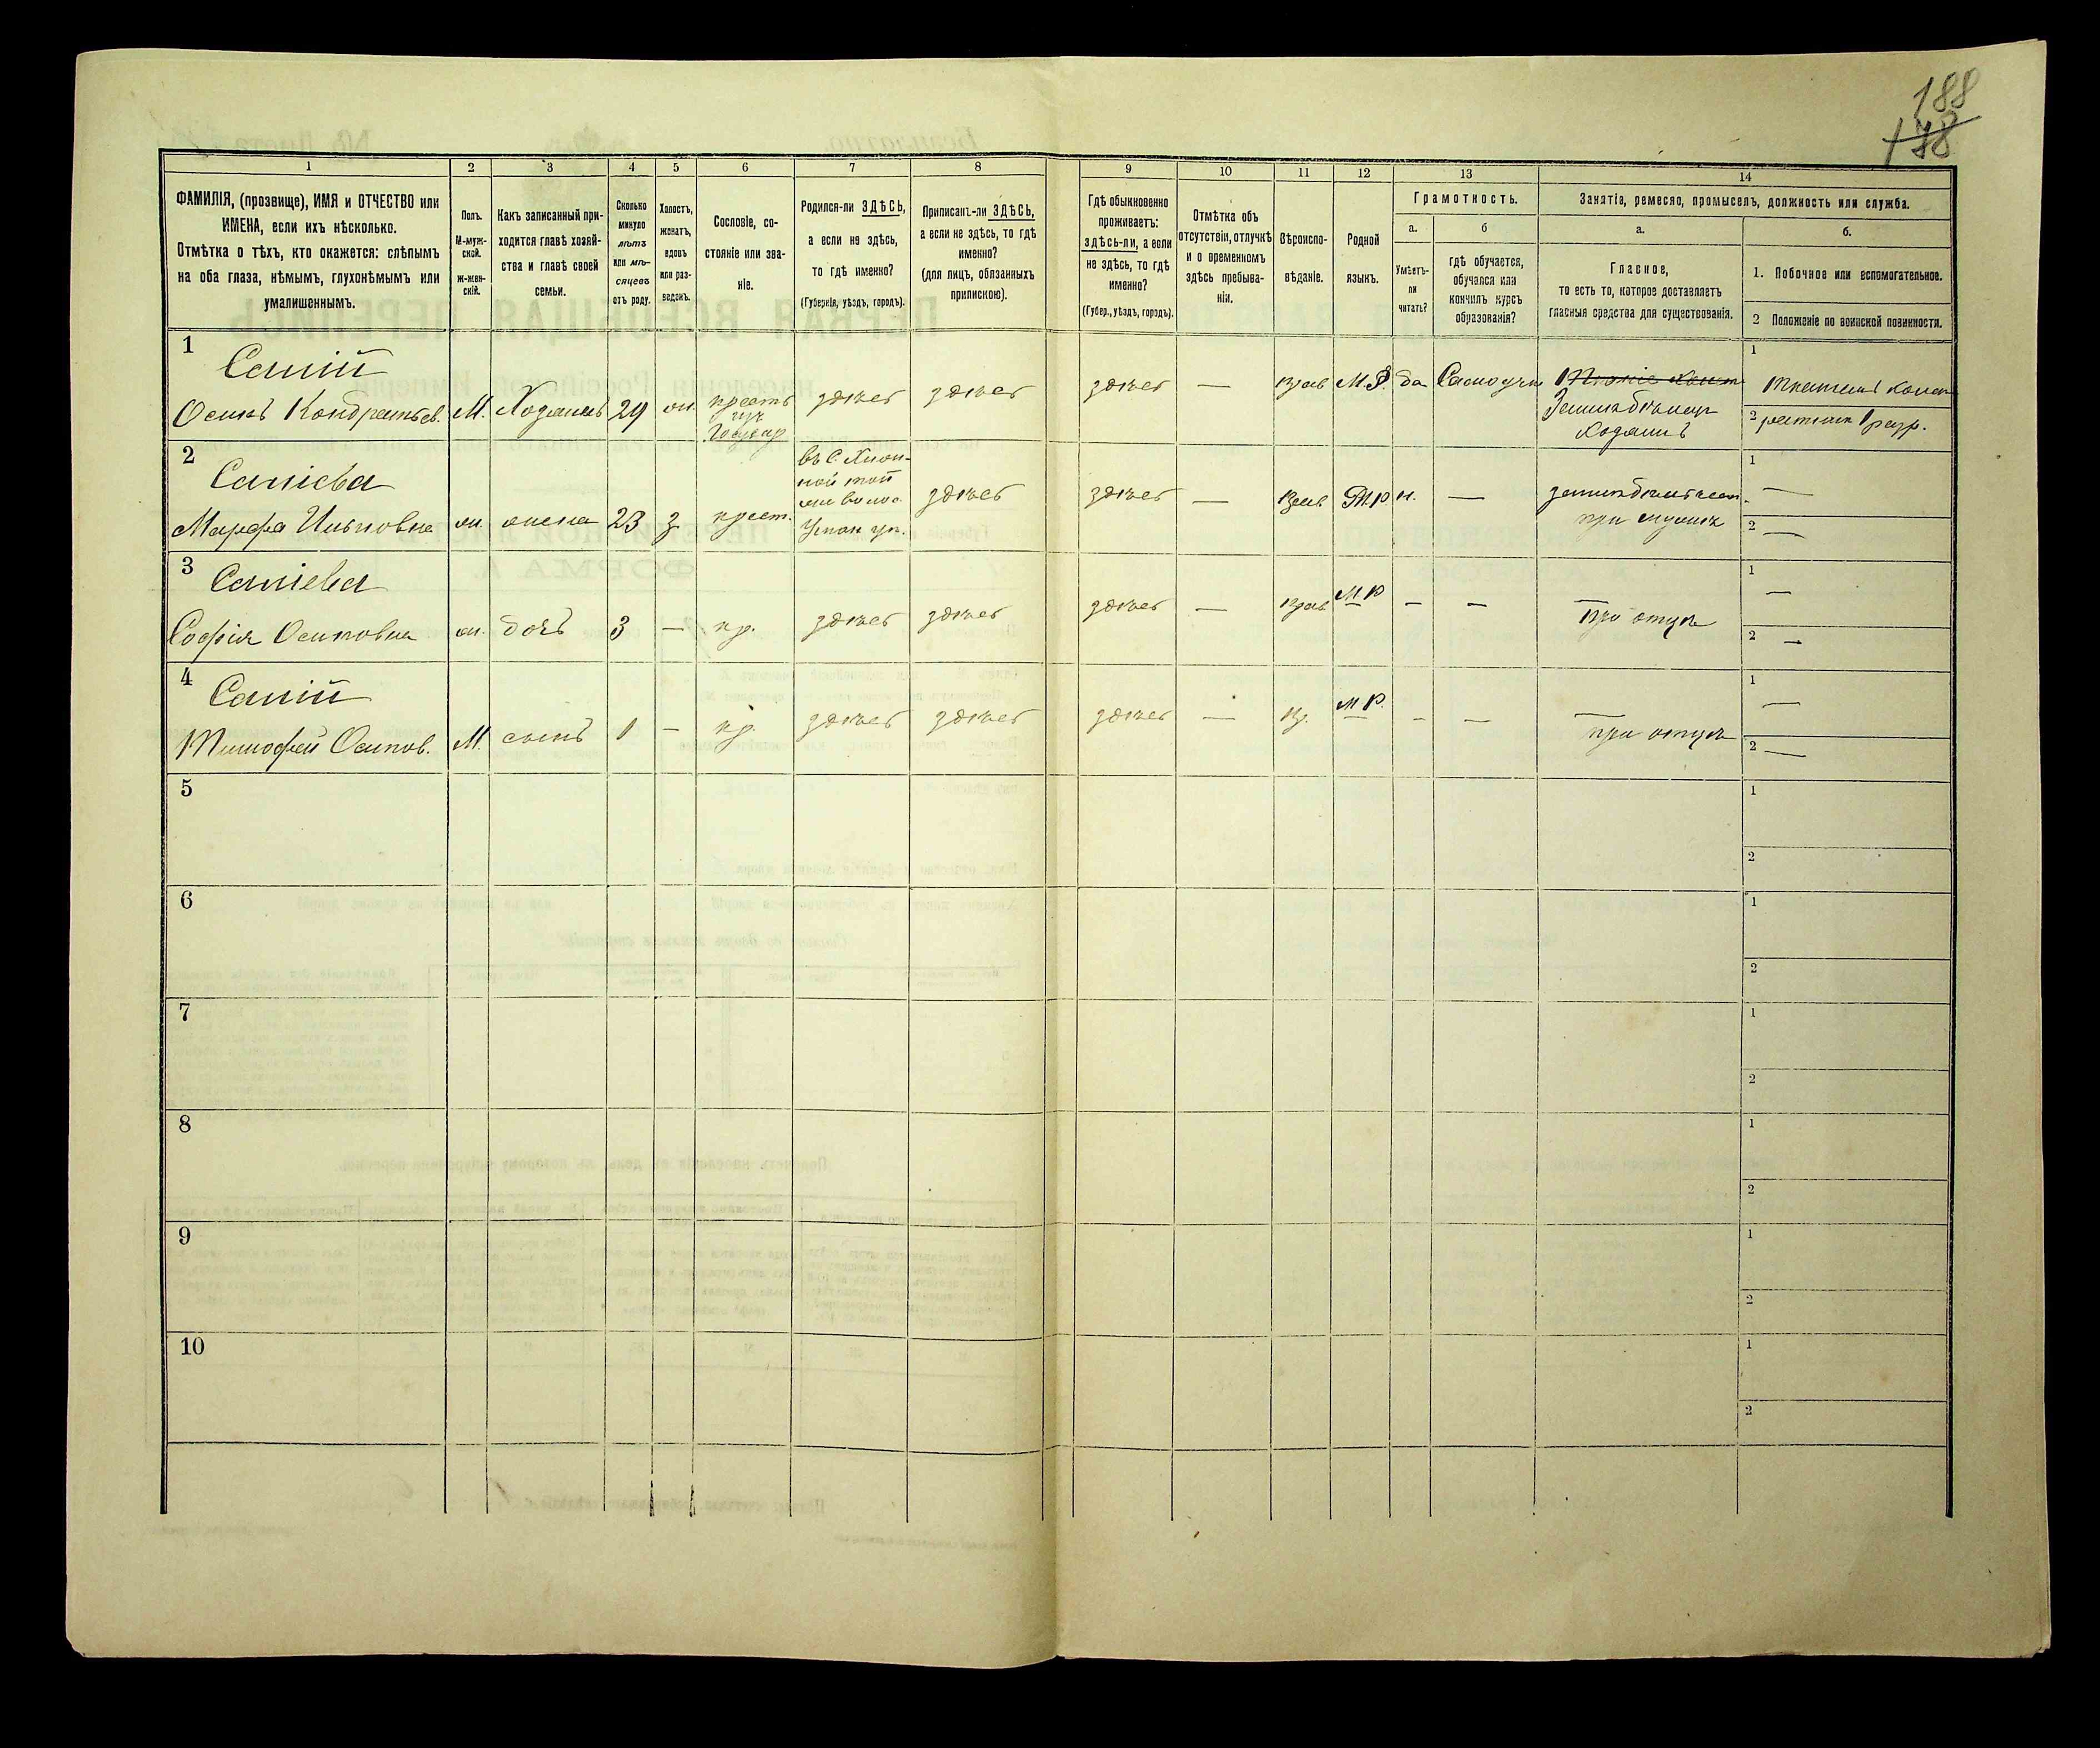 188
178
1 2 3 4 5 6 7 8 9 10 11 12 13 14
ФАМИЛІЯ, (прозвище), ИМЯ и ОТЧЕСТВО или
ИМЕНА, если ихъ нѣсколько.
Отмѣтка о тѣхъ, кто окажется: слѣпымъ
на оба глаза, нѣмымъ, глухонѣмымъ или
умалишеннымъ.
Полъ.
М-муж-
ской.
ж-жен-
скій.
Какъ записанный при-
ходится главѣ хозяй-
ства и главѣ своей
семьи.
Сколько
минуло
лѣтъ
или мѣ-
сяцевъ
отъ роду.
Холостъ,
женатъ,
вдовъ
или раз-
веденъ.
Сословіе, со-
стояніе или зва-
ніе.
Родился-ли ЗДѢСЬ,
а если не здѣсь,
то гдѣ именно?
(Губернія, уѣздъ, городъ).
Приписанъ-ли ЗДѢСЬ,
а если не здѣсь, то гдѣ
именно?
(для лицъ, обязанныхъ
припискою).
Гдѣ обыкновенно
проживаетъ:
здѣсь-ли, а если
не здѣсь, то гдѣ
именно?
(Губер., уѣздъ, городъ).
Отмѣтка объ
отсутствіи, отлучкѣ
и о временномъ
здѣсь пребыва-
ніи.
Вѣроиспо-
вѣданіе.
Родной
языкъ.
Грамотность.
а.
Умѣетъ-
ли
читать?
б
гдѣ обучается,
обучался или
кончилъ курсъ
образованія?
Занятіе, ремесло, промыселъ, должность или служба.
а.
Главное,
то есть то, которое доставляетъ
главныя средства для существованія.
б.
1. Побочное или вспомогательное.
2 Положеніе по воинской повинности.
1
Сапій
Осипъ Кондратьев. М. Хозяинъ 29 ж. крест. здѣсь здѣсь здѣсь — прав М.Р. да
изъ
Госуд
Земледѣлецъ
хозяинъ
1
2 ратник 1 разр.
2
Сапіева
Марфа ж. жена 23 з. крест.
здѣсь здѣсь — М.Р. н. —
при мужѣ
1 —
2 —
3
Сапіева
Софія Осиповна ж. дочь 3 — кр. здѣсь здѣсь здѣсь — прав М.Р. — — при отцѣ
1 —
2 —
4
Сапій
Тимофей Осипов. М. сынъ 1 — кр. здѣсь здѣсь здѣсь — пр. М.Р. — — при отцѣ
1 —
2 —
5
1
2
6
1
2
7
1
2
8
1
2
9
1
2
10
1
2